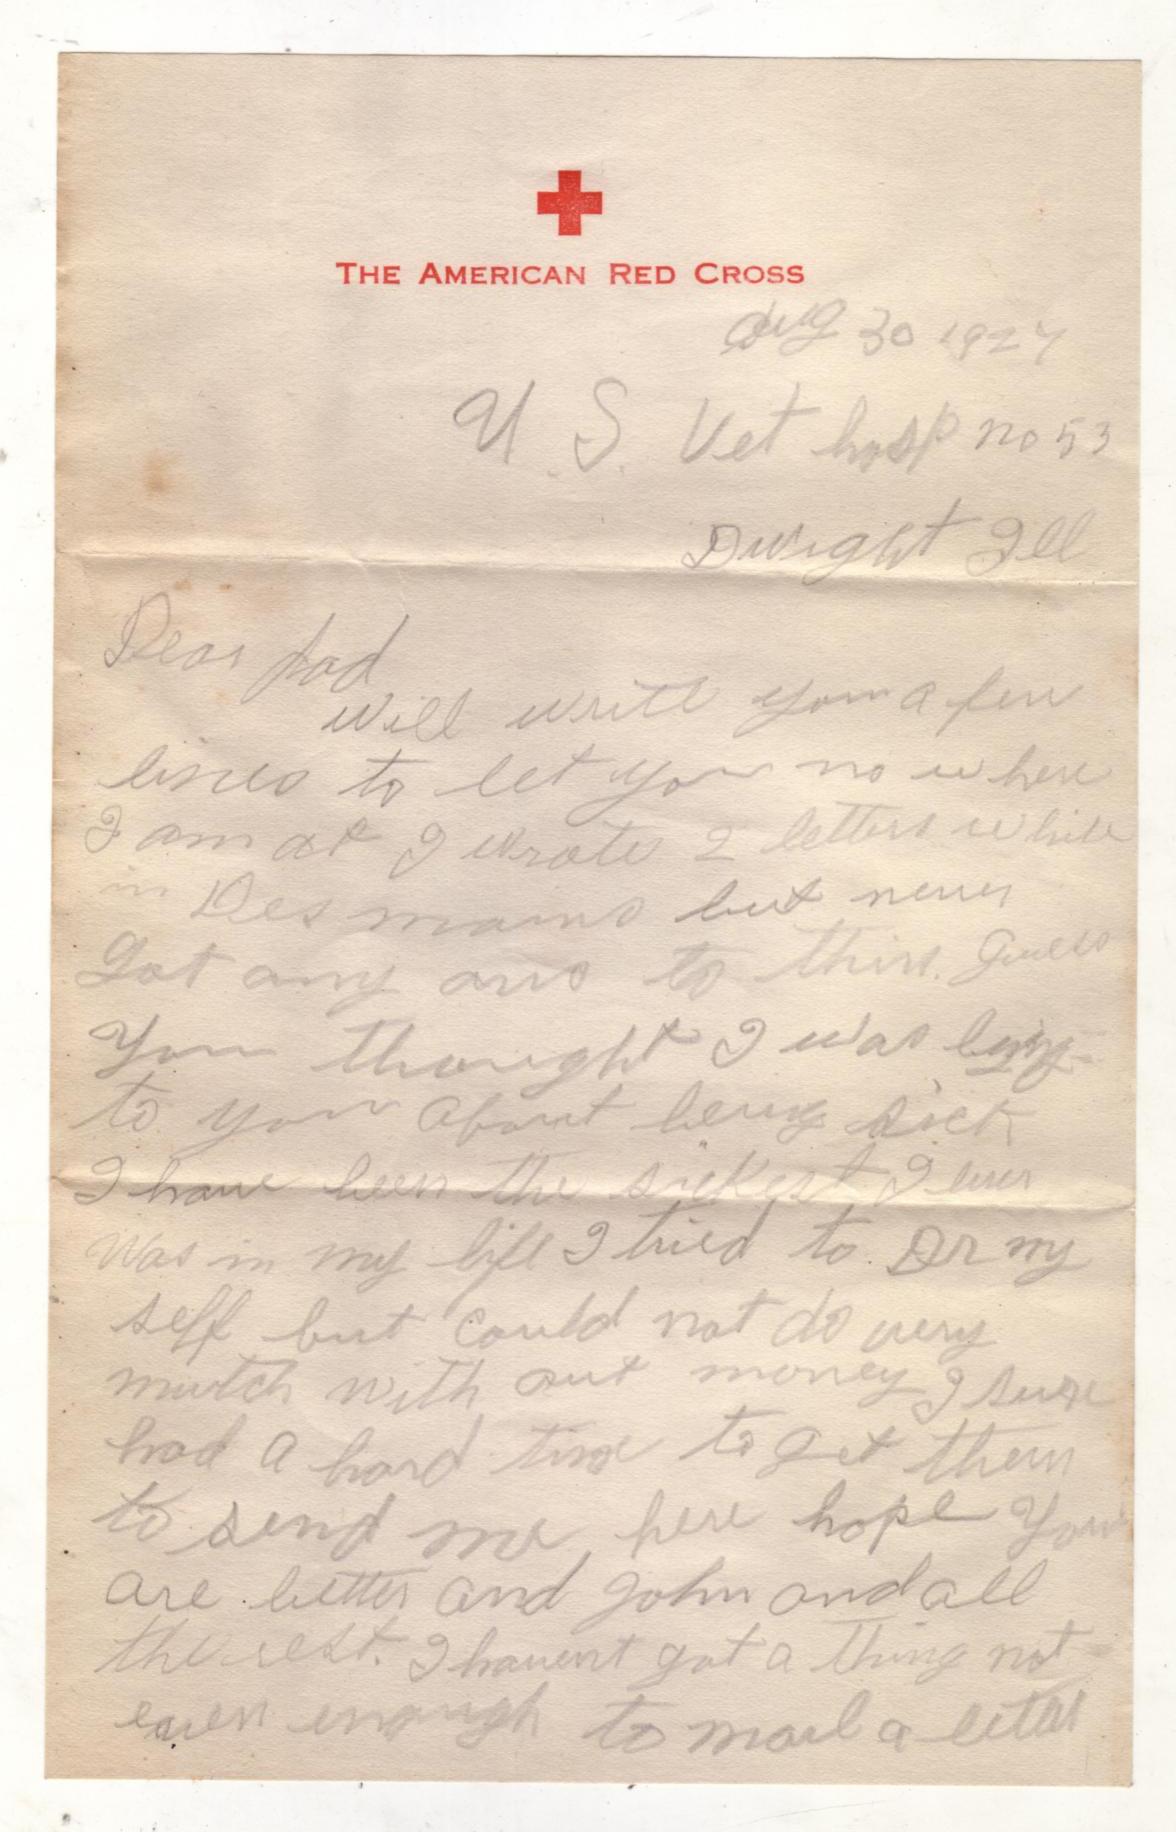 THE AMERICAN RED CROSS
Aug 30 1927
U. S. Vet hosp no 53
Dwight Ill
Dear dad
will write you a few
lines to let you no where
I am at I wrote 2 letters while
in Des moins but never
Got any ans to thim. Guess
You thought I was lying
to you about being sick
I have been the sickest I ever
was in my life I tried to Dr my
self but could not do very
mutch with out money I sure
had a hard time to get them
to send me here hope You
are better and John and all
the rest. I havent got a thing not
even enough to mail a letter